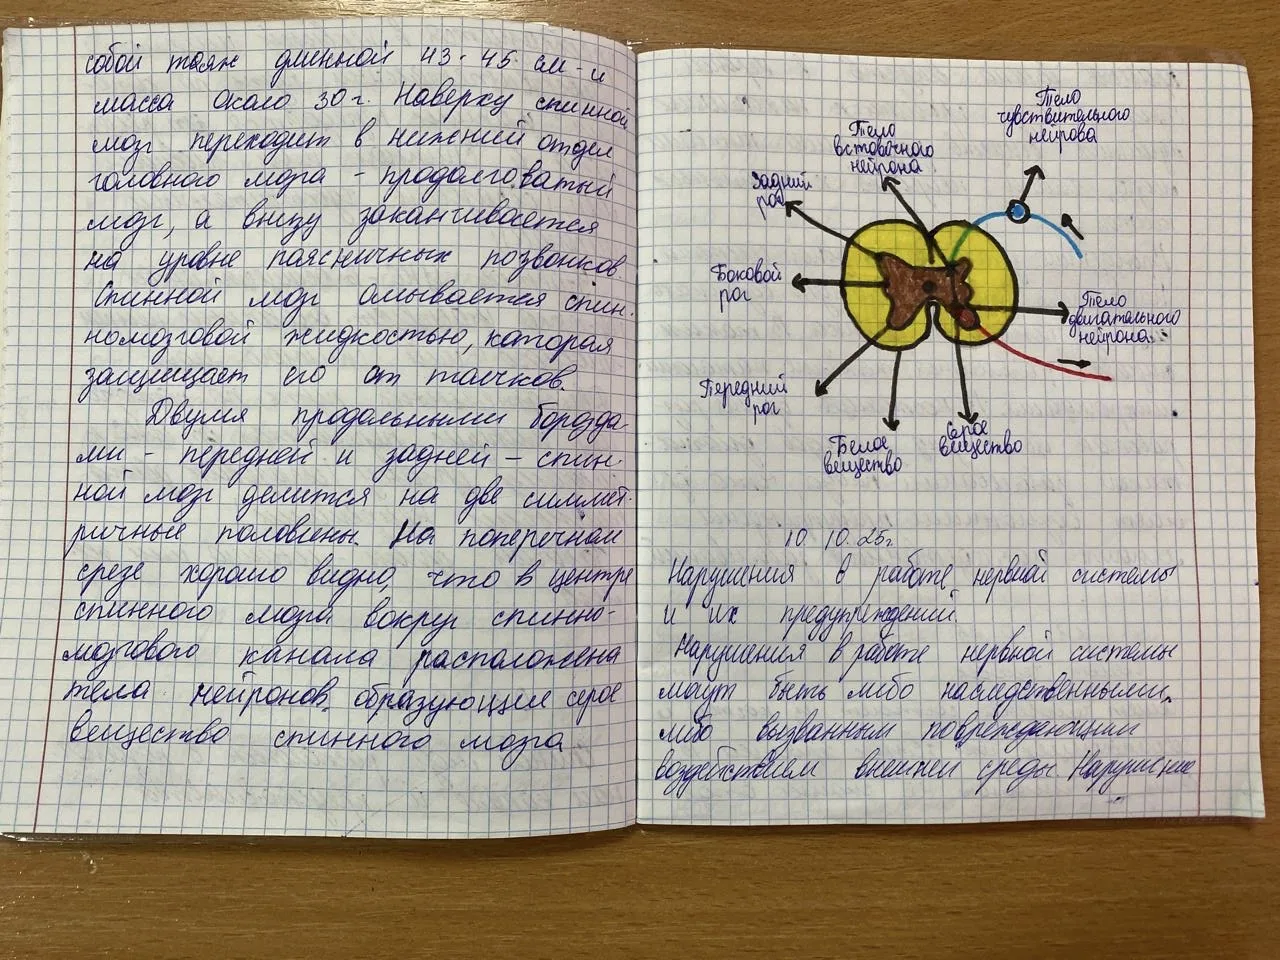 собой тояж длинной 43-45 см - и
масса около 30 г. Наверху спинной
мозг переходит в нижний отдел
головного мозга - продолговатый
мозг, а внизу заканчивается
на уровне поясничных позвонков.
Спинной мозг омывается спин-
номозговой жидкостью, которая
защищает его от толчков.
Двумя продольными борозда-
ми - передней и задней - спин-
ной мозг делится на две симмет-
ричные половины. На поперечном
срезе хорошо видно, что в центре
спинного мозга вокруг спинно-
мозгового канала расположена
тела нейронов, образующие серое
вещество спинного мозга
Тело
чувствительного
нейрова
Тело
встовочного
нейрона
Задний
рог
Боковой
рог
Тело
двигательного
нейрона
Передний
рог
Белое
вещество
Серое
вещество
10. 10. 25г.
Нарушения в работе нервной системы
и их предупреждений.
Нарушения в работе нервной системы
могут быть либо наследственными,
либо вызванным повреждающим
воздействием внешней среды. Нарушение